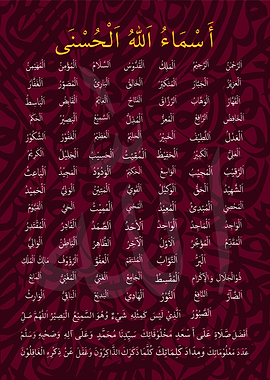 أَسْمَاءُ اللهُ الْحُسْنَى
الرَّحْمٰنُ الرَّحِيْمُ الْمَلِكُ الْقُدُّوْسُ السَّلَامُ الْمُؤْمِنُ الْمُهَيْمِنُ
الْعَزِيْزُ الْجَبَّارُ الْمُتَكَبِّرُ الْخَالِقُ الْبَارِئُ الْمُصَوِّرُ الْغَفَّارُ
الْقَهَّارُ الْوَهَّابُ الرَّزَّاقُ الْفَتَّاحُ الْعَلِيْمُ الْقَابِضُ الْبَاسِطُ
الْخَافِضُ الرَّافِعُ الْمُعِزُّ الْمُذِلُّ السَّمِيْعُ الْبَصِيْرُ الْحَكَمُ
الْعَدْلُ اللَّطِيْفُ الْخَبِيْرُ الْحَلِيْمُ الْعَظِيْمُ الْغَفُوْرُ الشَّكُوْرُ
الْعَلِيُّ الْكَبِيْرُ الْحَفِيْظُ الْمُقِيْتُ الْحَسِيْبُ الْجَلِيْلُ الْكَرِيْمُ
الرَّقِيْبُ الْمُجِيْبُ الْوَاسِعُ الْحَكِيْمُ الْوَدُوْدُ الْمَجِيْدُ الْبَاعِثُ
الشَّهِيْدُ الْحَقُّ الْوَكِيْلُ الْقَوِيُّ الْمَتِيْنُ الْوَلِيُّ الْحَمِيْدُ
الْمُحْصِي الْمُبْدِئُ الْمُعِيْدُ الْمُحْيِي الْمُمِيْتُ الْحَيُّ الْقَيُّوْمُ
الْوَاجِدُ الْمَاجِدُ الْوَاحِدُ الْاَحَدُ الصَّمَدُ الْقَادِرُ الْمُقْتَدِرُ
الْمُقَدِّمُ الْمُؤَخِّرُ الْاَوَّلُ الْآخِرُ الظَّاهِرُ الْبَاطِنُ الْوَالِيُ
الْبَرُّ التَّوَّابُ الْمُنْتَقِمُ الْعَفُوُّ الرَّؤُوْفُ مَالِكُ الْمُلْكِ
ذُوالْجَلَالِ وَالْاِكْرَامِ الْمُقْسِطُ الْجَامِعُ الْغَنِيُّ الْمُغْنِيُ الْمَانِعُ
الضَّآرُّ النَّافِعُ النُّوْرُ الْهَادِيُ الْبَدِيْعُ الْبَاقِيُ الْوَارِثُ
الصَّبُوْرُ الَّذِيْ لَيْسَ كَمِثْلِهِ شَيْءٌ وَهُوَ السَّمِيْعُ الْبَصِيْرُ اَللّٰهُمَّ صَلِّ
اَفْضَلَ صَلَاةٍ عَلَى اَسْعَدِ مَخْلُوْقَاتِكَ سَيِّدِنَا مُحَمَّدٍ وَعَلَى آلِهِ وَصَحْبِهِ وَسَلِّمْ
عَدَدَ مَعْلُوْمَاتِكَ وَمِدَادَ كَلِمَاتِكَ كُلَّمَا ذَكَرَكَ الذَّاكِرُوْنَ وَغَفَلَ عَنْ ذِكْرِهِ الْغَافِلُوْنَ